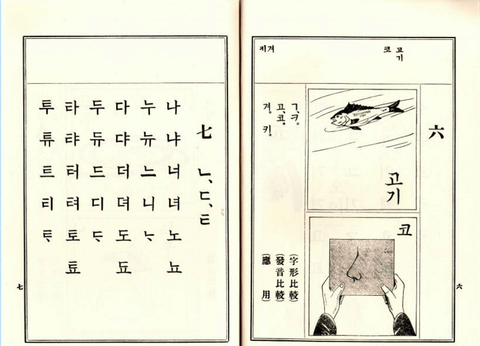 六
고기
코
고기
코
ㄱ、ㅋ。
고、코。
겨、키。
(字形比較)
(發音比較)
(應用)
六
七 ㄴ、ㄷ、ㅌ
나 냐 너 녀 노 뇨
누 뉴 느 니 ᄂᆞ
다 댜 더 뎌 도 됴
두 듀 드 디 ᄃᆞ
타 탸 터 텨 토 툐
투 튜 트 티 ᄐᆞ
七